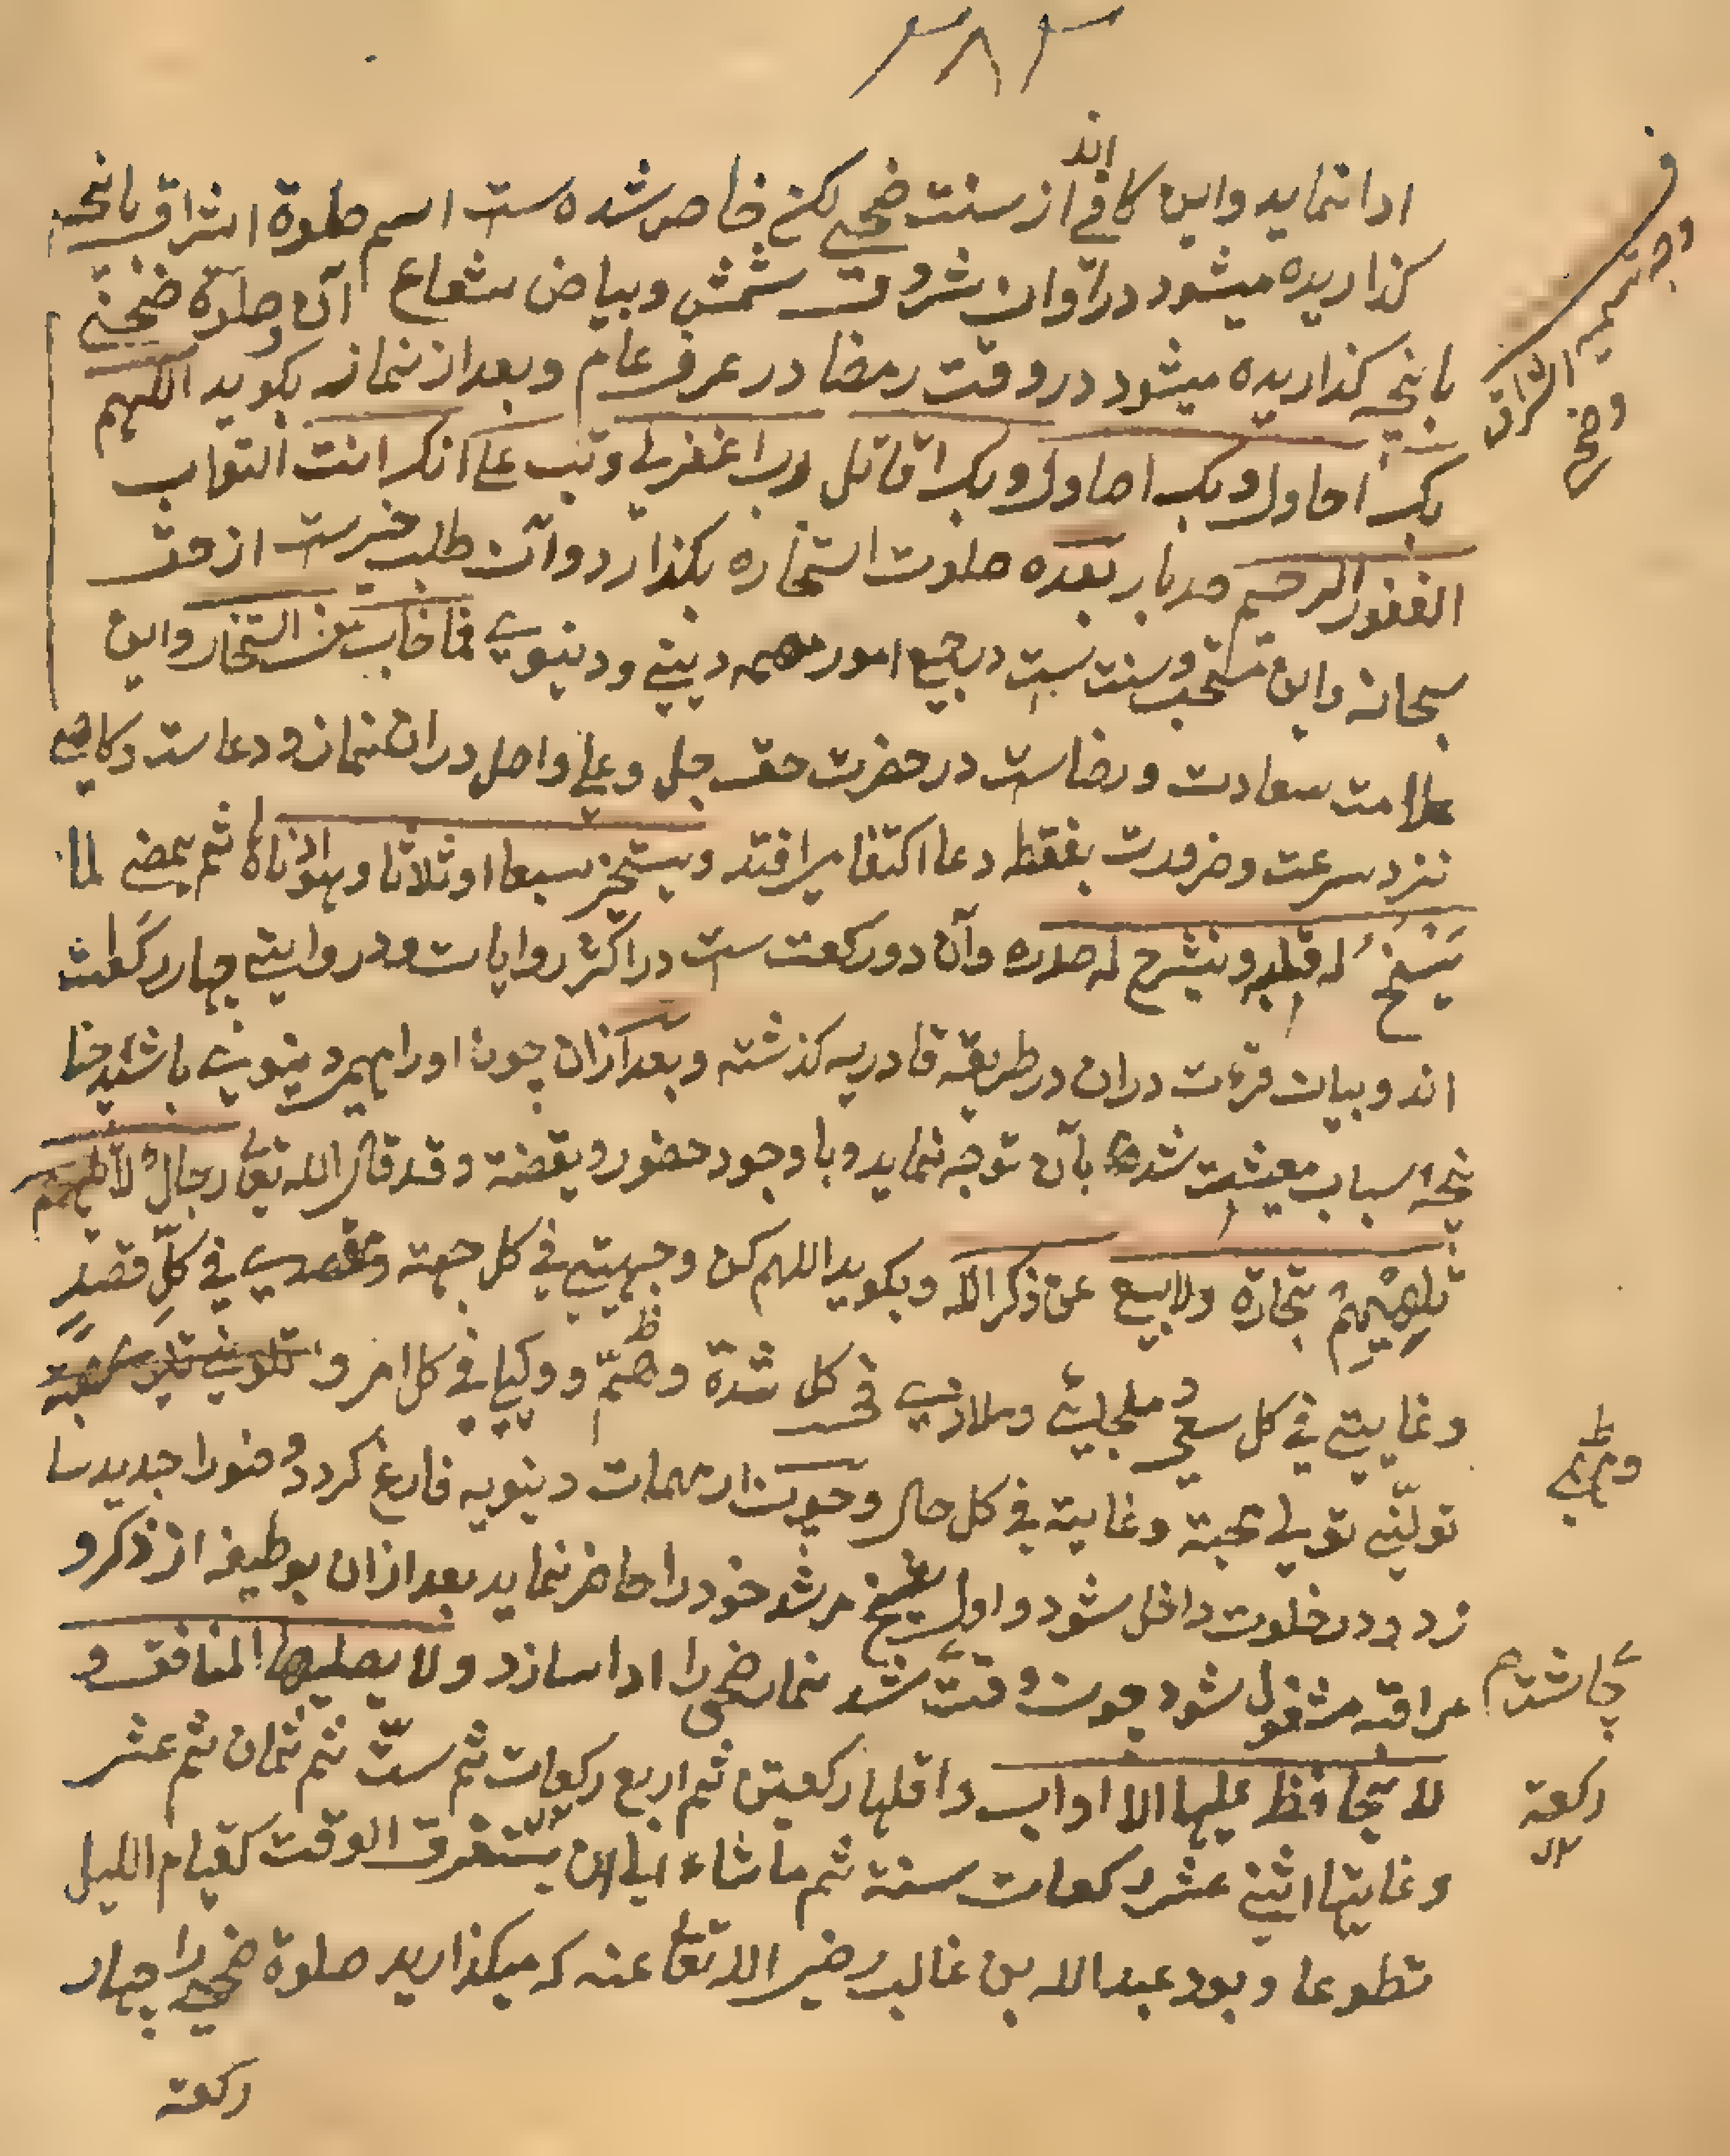 ٣٨٢
ادا نماید واین کافی اند از سنت ضحی لکن خاص شده ست اسم صلوة اشراق بانچه
کذاریده میشود در آوان شروق شمش وبیاض شعاع آن وصلوة ضحی
بانچه کذاریده میشود در وقت رمضا در عرف عام وبعد از نماز بکوید اللهم
بک احاول وبک اصاول وبک اقاتل رب اغفرلی وتب علی انک انت التواب
الغفور الرحیم صدبار بعده صلوت استخاره بکذارد وآن طلب خیرست از حق
سبحانه واین مستحب وسنت ست در جمیع امور مهمه دینی ودینوی فما خاب من استخار واین
علامت سعادت ورضاست در حضرت حق جل وعلی واصل دران نماز ودعاست وکاهی
نزد سرعت وضرورت بفقط دعا اکتفا میرافتد ویستخیر سبعا اوثلاثا وهو ادناه ثم یمضی لما
یَنْسَخُ له قلبه وینشرح له صدره وآن دو رکعت ست در اکثر روایات ودر روایتی چهار رکعات
اند وبیان قرءت دران در طریقه قادریه کذشته وبعد ازان چون اورا مهمی دینوی باشد چنا
نچه اسباب معیشت شده بآن توجه نماید وبا وجود حضور ویقضة وقد قال الله تعا رجالٌ لا تلهیهم
تُلْهِیْهِمْ تجارة ولا بیع عن ذکر الله وبکوید اللهم کن وجهتی فی کل جهته ومقصدی فی کلِّ قصدٍ
وغایتی فی کل سعی وملجائی وملاذی فی کل شدة وهمّ ووکیلی فی کل امر و
تولّنی تولی محبة وغایة فی کل حال وچون از مهمات دینویه فارغ کردد وضورا جدید سا
زد ودر خلوت داخل شود واول شیخ مرشد خودرا حاضر نماید بعد ازان بوظیفه از ذکر و
مراقبه مشغول شود چون وقت شد نماز ضحی را ادا سازد ولا یصلیها المنافق و
لا یحافظ علیها الا اواب واقلها رکعتین ثم اربع رکعات ثم ستّ ثم ثمان ثم عشر
وغایتها اثنی عشر رکعات سنة ثم ما شاء الی ان یستغرق الوقت کقیام اللیل
تطوعا وبود عبد الله بن غالب رضی الله تعا عنه که میکذارید صلوة ضحی را چهار
رکعة
وجه تسمیه
اشراق
وضحی
چاشت
رکعة